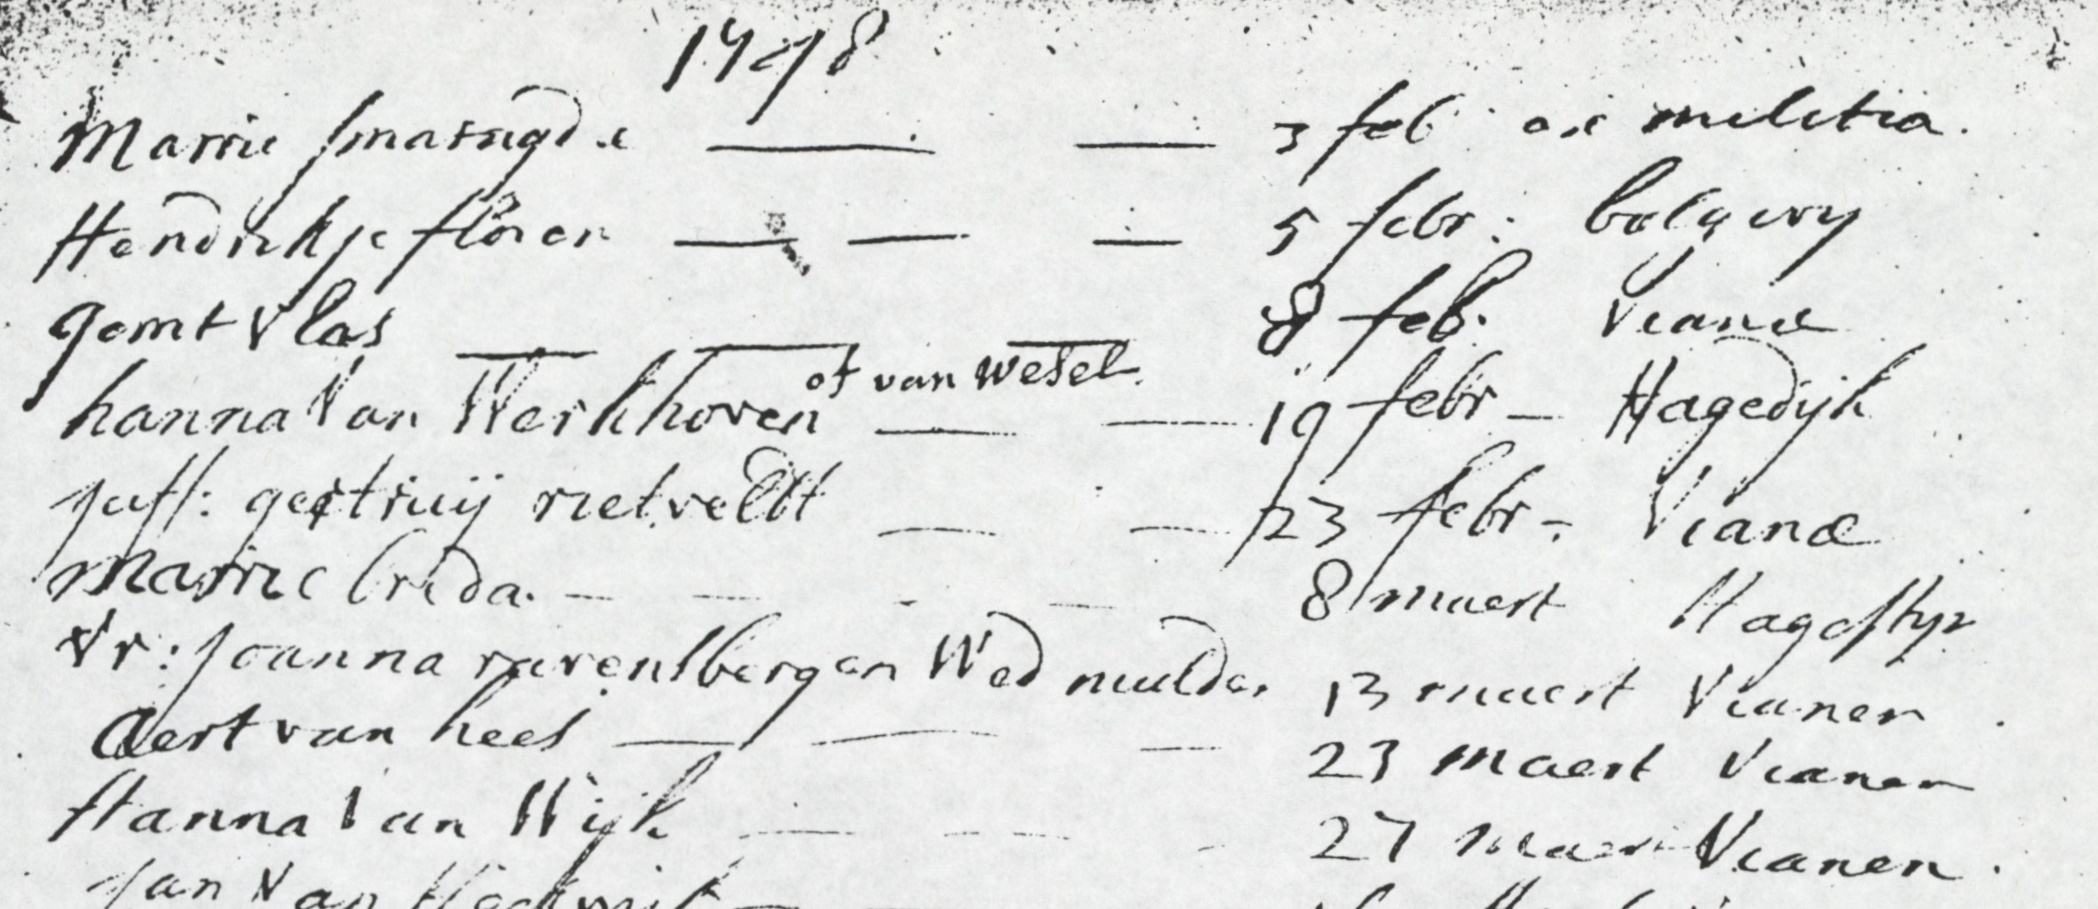 1748
Marrie 3 feb ex militia.
Hendrikje floren 5 febr: bolgery
gomt Vlas 8 feb: Vianæ
hanna Van Werkhoven of van Wesel. 19 febr - Hagedijk
juff: geertruij rietveldt 23 febr - Vianæ
Marrie breda. 8 maert Hagestijn
Vr: Joanna ravensbergen Wed mulder 13 maert Vianen
Aert van hees 23 maert Vianen
Hanna Van Wijk 27 maert Vianen.
Jan Van